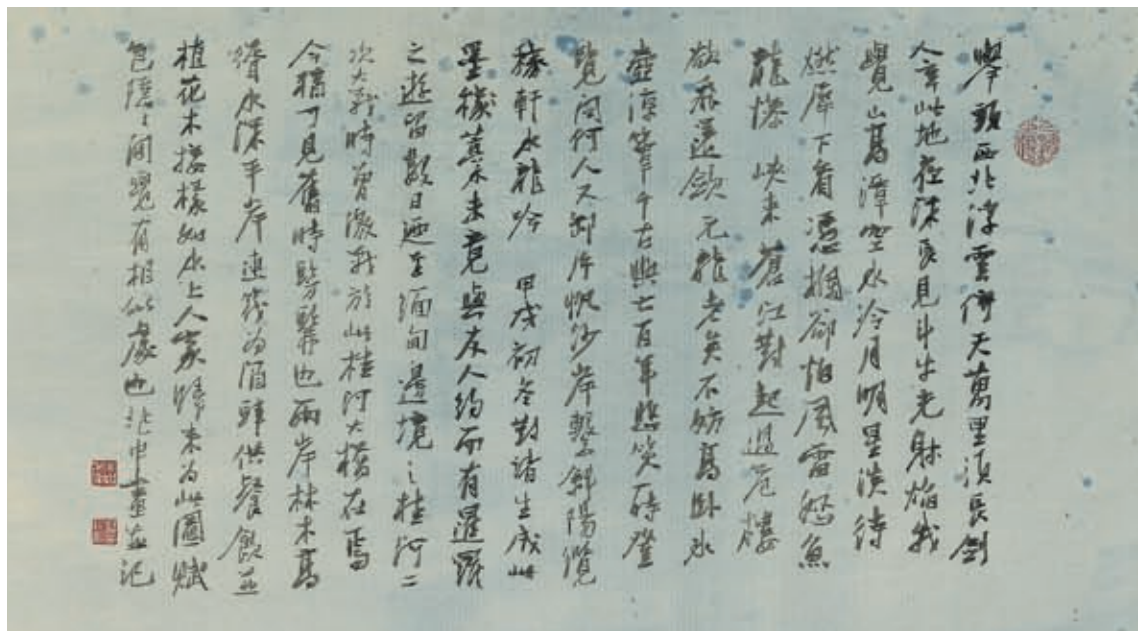 舉頭西北浮雲倚天萬里須長劍
人言此地夜深長見斗牛光焰我
覺山高潭空水冷月明星淡待
燃犀下看憑欄卻怕風雷怒魚
龍慘 峽束蒼江對起過危樓
欲飛還斂元龍老矣不妨高臥冰
壺涼簟千古興亡百年悲笑一時登
覽問何人又卸片帆沙岸繫斜陽纜
稼軒水龍吟 甲戌初冬對諸生成此
墨稿藁未竟與友人約而有暹羅
之遊留數日迺至緬甸邊境之桂河二
次大戰時曾激戰於此桂河大橋在焉
今猶可見舊時也兩岸林木高
聳水深平岸連筏為酒肆供餐飲並
植花木如水上人家歸來為此圖賦
色隱隱間竟有相似處也中畫並記